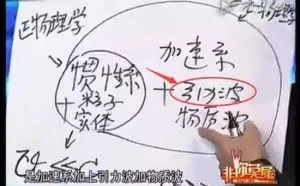 正物理学
惯性系
+ 粒子
实体
加速系
+ 引力波
物质波
是加速系加上引力波加物质波
非你莫属